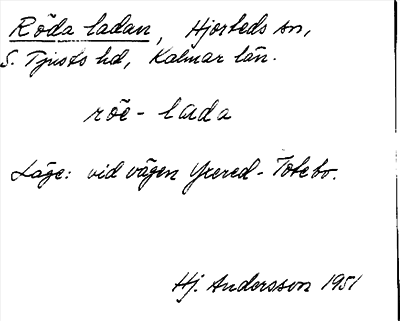 Röda ladan, Hjorteds sn,
S. Tjusts hd, Kalmar län.
röe - lada
Läge: vid vägen Yxered - Totebo.
Hj. Andersson 1951